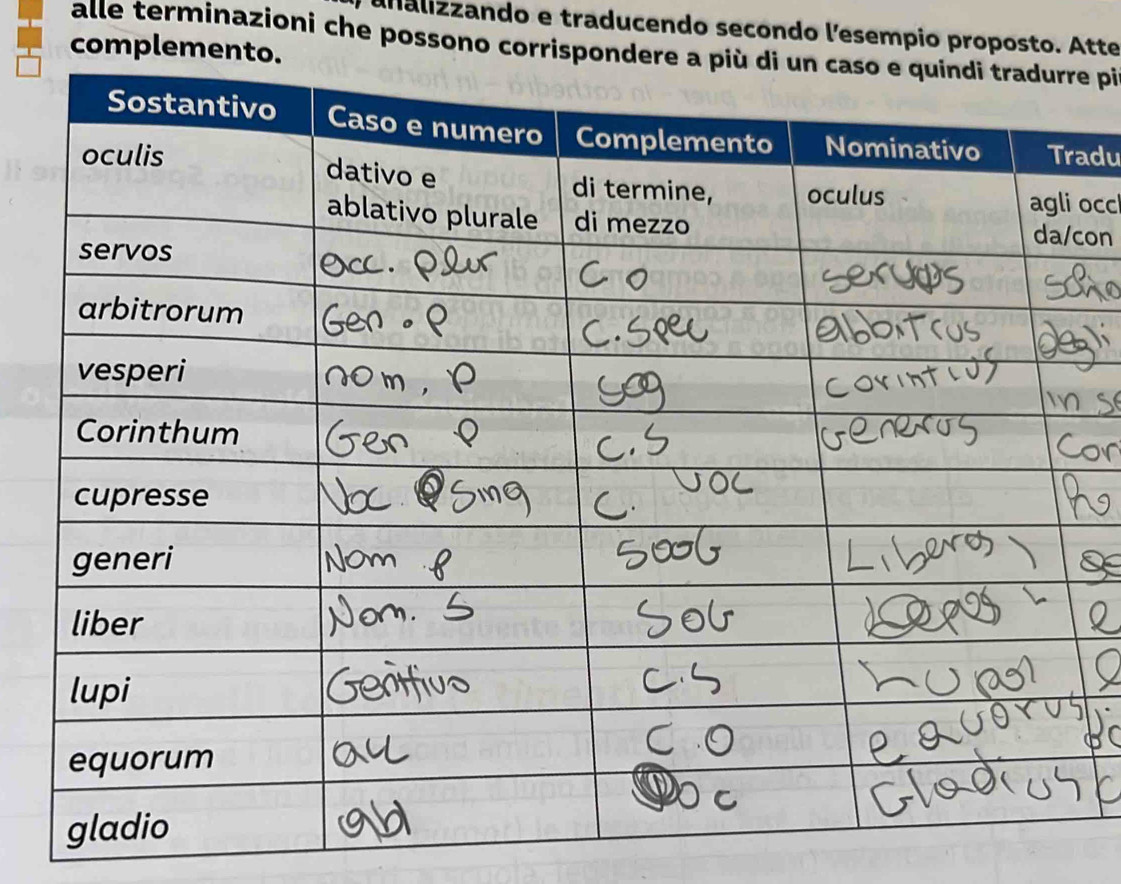 analizzando e traducendo secondo l'esempio proposto. Atte
alle terminazioni che possono corrispondere a più di un caso e quindi tradurre pi
complemento.
Sostantivo Caso e numero Complemento Nominativo Tradu
oculis dativo e ablativo plurale di termine, di mezzo oculus agli occ da/con
servos acc. plur C.O servos
arbitrorum Gen. P C. Spec degli
vesperi nom. P sog corintius in se
Corinthum Gen P C.S Generos Cor
cupresse Voc sing C. voc
generi Nom P SOOG Liberos se
liber Nom. S SOG
lupi Genitivo C.S Lupos
equorum C.O equorus
gladio abl Gladius